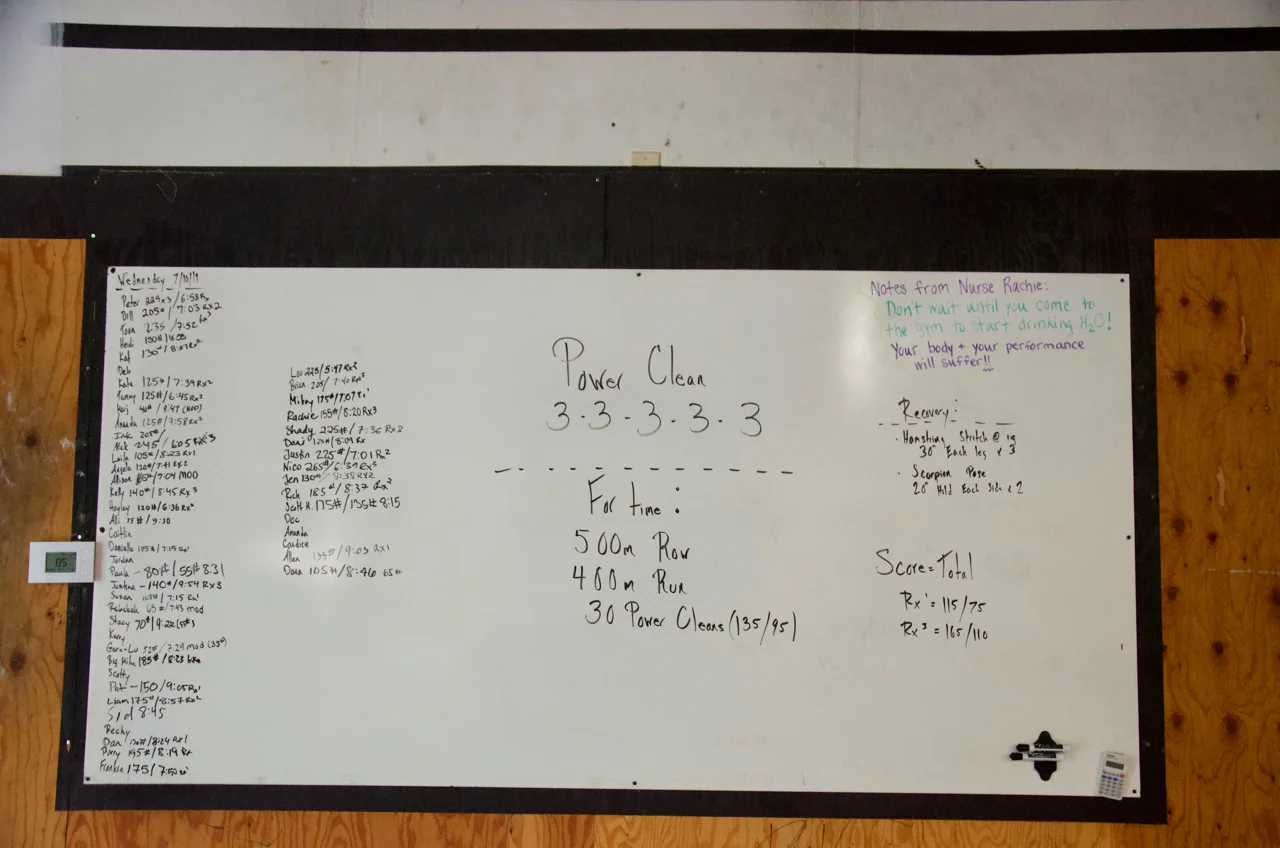 Wednesday
Peter 225x3/6:58 Rx
Bill 205# 7:03 Rx2
235 /7:52 Rx3
Heidi
Kat 130#/8:07 Rx2
Deb
Kate 125#/7:39 Rx2
125#/6:45 Rx2
40# / 9:47
125#/7:58 Rx2
205#
245 / 6:05 Rx3
Laila 105#/8:23 Rx1
Angela 120#/7:41 Rx2
Allison 85#/7:04 MOD
Kelly 140#/8:45 Rx3
Hayley 120#/6:36 Rx2
Ali 75#/9:30
Caitlin
Danielle 115#/7:15 Rx1
Jordan
Paula - 80#/55# 8:31
Justina - 140#/9:54 Rx3
Susan 105#/7:15 Rx1
Rebekah 65#/7:43 mod
Stacy 70#/9:22 (55#)
Kerry
52#/7:29 mod (35#)
Big Mike 185#/8:23
Scotty
Pat - 150/9:05 Rx1
Liam 175#/8:57 Rx2
Sid 8:45
Becky
Dan 8:24 Rx1
195#/8:19 Rx
Frankie 175/7:50 Rx1
Lou 225/5:47 Rx3
Brian 205/7:40 Rx3
Mikey 175#/7:07
Rachie 155#/8:20 Rx3
Shady 225#/7:36 Rx2
125#/8:09 Rx
Justin 225#/7:01 Rx2
Nico 265#/6:37 Rx3
Jen 130#/8:38 Rx2
Rich 185#/8:37 Rx2
Scott H. 175#/135# 8:15
Doc
Amanda
Candice
Allen 135#/9:03 Rx1
Dana 105#/8:46 65#
Power Clean
3-3-3-3-3
For time:
500m Row
400m Run
30 Power Cleans (135/95)
Notes from Nurse Rachie:
Don't wait until you come to
the gym to start drinking H2O!
Your body + your performance
will suffer!!
Recovery:
- Hamstring Stretch @
30" Each leg x 3
- Scorpion Pose
20" Hold Each Side x 2
Score = Total
Rx1 = 115/75
Rx3 = 165/110